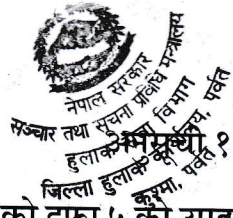 नेपाल सरकार
सञ्चार तथा सूचना प्रविधि मन्त्रालय
हुलाक सेवा विभाग
जिल्ला हुलाक कार्यालय, पर्वत
कुश्मा, पर्वत
अनुसूची १
को दफा ५ को उपद